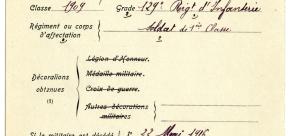 Classe 1909 Grade 129e Rigt d'Infanterie
Régiment ou corps
d'affectation
Soldat de 1ère Classe
Légion d'Honneur.
Médaille militaire.
Décorations
obtenues
Croix de guerre.
(1)
Autres décorations
militaires
Si le militaire est décédé 22 Mai 1916